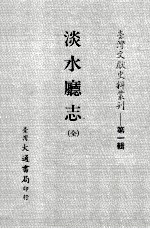 臺灣文獻史料叢刊——第一輯
淡水廳志
(全)
臺灣大通書局印行